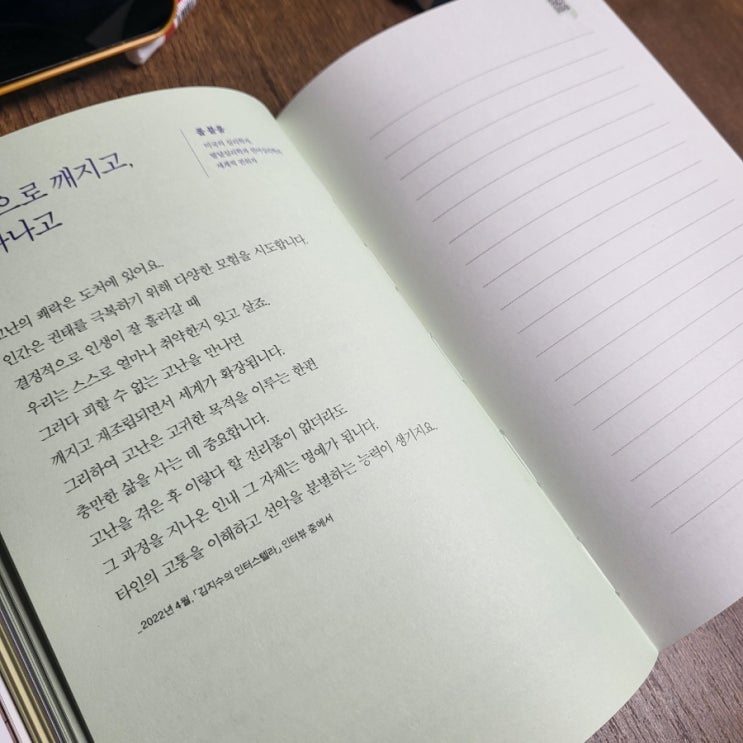 으로 깨지고,
나고
폴 블룸
미국의 심리학자,
발달심리학과 언어심리학의
세계적 권위자
고난의 쾌락은 도처에 있어요.
인간은 권태를 극복하기 위해 다양한 모험을 시도합니다.
결정적으로 인생이 잘 흘러갈 때
우리는 스스로 얼마나 취약한지 잊고 살죠.
그러다 피할 수 없는 고난을 만나면
깨지고 재조립되면서 세계가 확장됩니다.
그리하여 고난은 고귀한 목적을 이루는 한편
충만한 삶을 사는 데 중요합니다.
고난을 겪은 후 이렇다 할 전리품이 없더라도
그 과정을 지나온 인내 그 자체는 명예가 됩니다.
타인의 고통을 이해하고 선악을 분별하는 능력이 생기지요.
_2022년 4월, 「김지수의 인터스텔라」 인터뷰 중에서